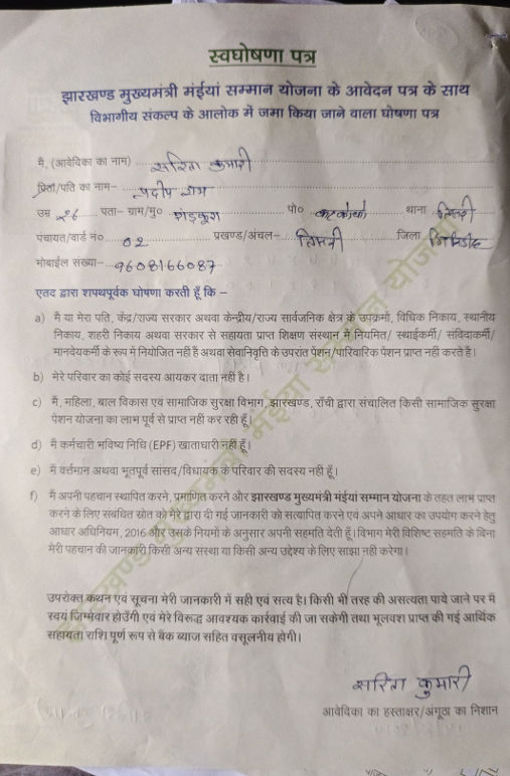 स्वघोषणा पत्र
झारखण्ड मुख्यमंत्री मंईयां सम्मान योजना के आवेदन पत्र के साथ
विभागीय संकल्प के आलोक में जमा किया जाने वाला घोषणा पत्र
मैं, (आवेदिका का नाम) सरिता कुमारी
पिता/पति का नाम– प्रदीप राम
उम्र 26 पता– ग्राम/मु० पो० थाना
पंचायत/वार्ड नं० 02 प्रखण्ड/अंचल– जिला गिरिडीह
मोबाईल संख्या– 9608166087
एतद द्वारा शपथपूर्वक घोषणा करती हूँ कि –
a) मैं या मेरा पति, केंद्र/राज्य सरकार अथवा केन्द्रीय/राज्य सार्वजनिक क्षेत्र के उपक्रमों, विधिक निकाय, स्थानीय
निकाय, शहरी निकाय अथवा सरकार से सहायता प्राप्त शिक्षण संस्थान में नियमित/ स्थाईकर्मी/ संविदाकर्मी/
मानदेयकर्मी के रूप में नियोजित नहीं हैं अथवा सेवानिवृत्ति के उपरांत पेंशन/पारिवारिक पेंशन प्राप्त नहीं करते है।
b) मेरे परिवार का कोई सदस्य आयकर दाता नही है।
c) मैं, महिला, बाल विकास एवं सामाजिक सुरक्षा विभाग, झारखण्ड, राँची द्वारा संचालित किसी सामाजिक सुरक्षा
पेंशन योजना का लाभ पूर्व से प्राप्त नहीं कर रही हूँ।
d) मैं कर्मचारी भविष्य निधि (EPF) खाताधारी नहीं हूँ।
e) मैं वर्तमान अथवा भूतपूर्व सांसद/विधायक के परिवार की सदस्य नहीं हूँ।
f) मैं अपनी पहचान स्थापित करने, प्रमाणित करने और झारखण्ड मुख्यमंत्री मंईयां सम्मान योजना के तहत लाभ प्राप्त
करने के लिए संबंधित स्रोत को मेरे द्वारा दी गई जानकारी को सत्यापित करने एवं अपने आधार का उपयोग करने हेतु
आधार अधिनियम, 2016 और उसके नियमों के अनुसार अपनी सहमति देती हूँ। विभाग मेरी विशिष्ट सहमति के बिना
मेरी पहचान की जानकारी किसी अन्य संस्था या किसी अन्य उद्देश्य के लिए साझा नही करेगा।
उपरोक्त कथन एवं सूचना मेरी जानकारी में सही एवं सत्य है। किसी भी तरह की असत्यता पाये जाने पर मैं
स्वयं जिम्मेवार होउँगी एवं मेरे विरुद्ध आवश्यक कार्रवाई की जा सकेगी तथा भूलवश प्राप्त की गई आर्थिक
सहायता राशि पूर्ण रूप से बैंक ब्याज सहित वसूलनीय होगी।
सरिता कुमारी
आवेदिका का हस्ताक्षर/अंगूठा का निशान
झारखण्ड मुख्यमंत्री मंईयां सम्मान योजना